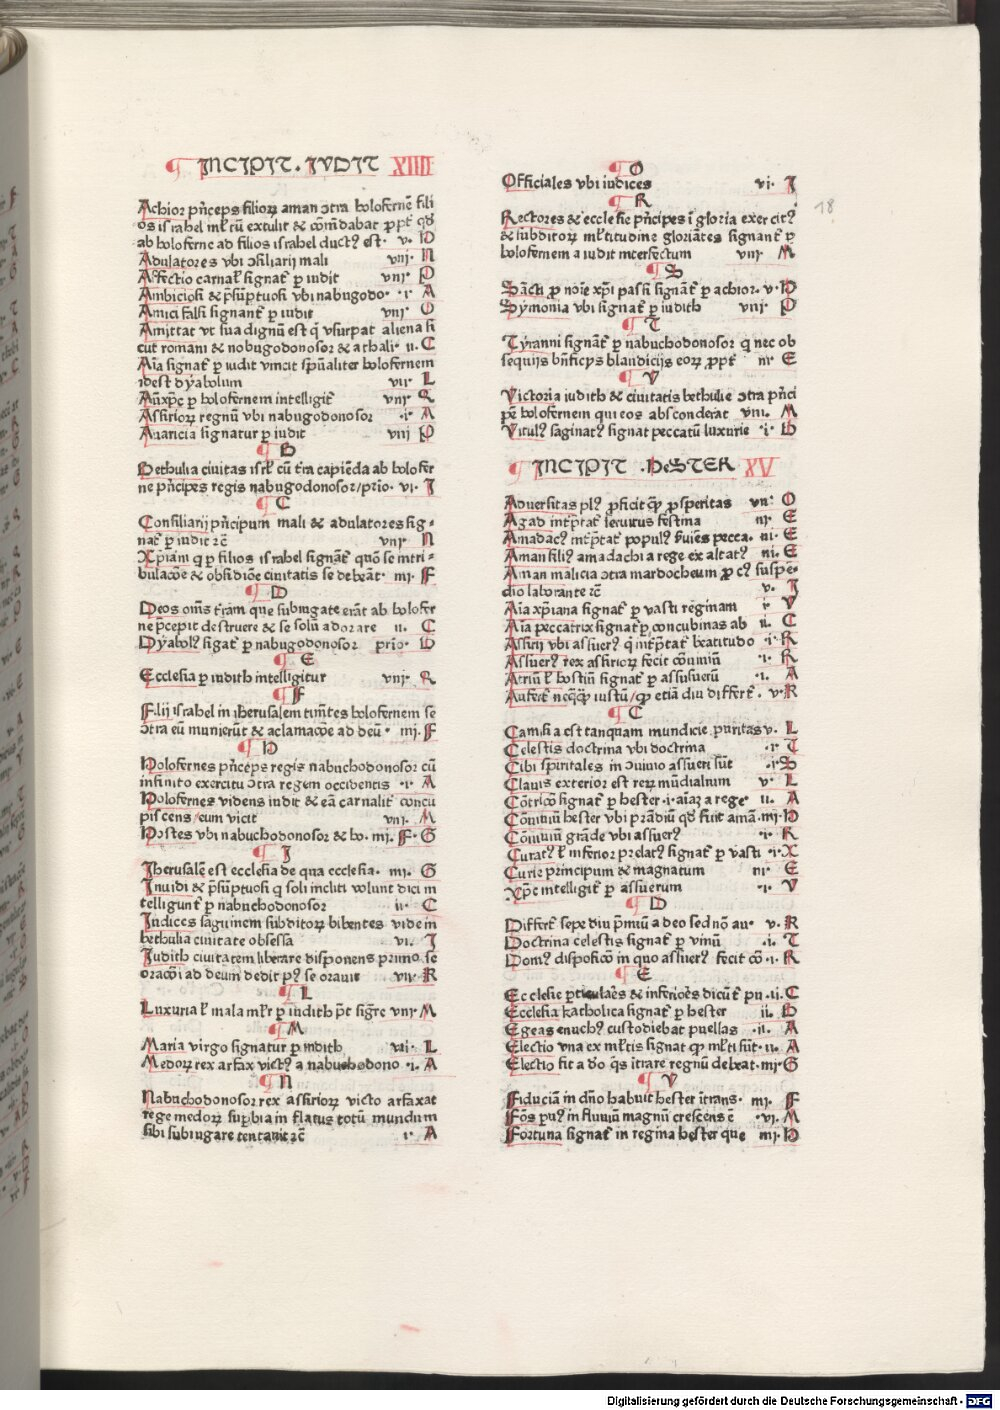 ¶ INCIPIT . IVDIT XIIII
Achior pñceps filioꝝ aman ꝯtra holofernē fili
os israhel ml̄t cū extulit & cōmēdabat ꝓpt̄ qḋ
ab holoferne ad filios israhel ductꝰ est · v. D
Adulatores vbi ꝯsiliarij mali vnj· N
Affectio carnal̄ signat̄ ꝑ iudit vnj· P
Ambiciosi & p̄sūptuosi vbi nabugodo· ·i· A
Amici falsi signant̄ ꝑ iudit vnj· O
Amittat vt sua dignū est q̄ vsurpat aliena si
cut romani & nobugodonosor & athali· ii· C
Aīa signat̄ ꝑ iudit vincit spūaliter holofernem
idest dyabolum viị· L
Aūxp̄c ꝑ holofernem intelligit̄ vnj· R
Assirioꝝ regnū vbi nabugodonosor ·i· A
Auaricia signatur ꝑ iudit vnj P
¶ B
Bethulia ciuitas isrl̄ cū t̄ra capiēda ab holofer
ne pñcipes regis nabugodonosor/prīo· vi· I
¶ C
Consiliarij pñcipum mali & adulatores sig·
nat̄ ꝑ iudit ⁊c̄ vnj· N
Xp̄iani q ꝑ filios israhel signāt̄ quō se in tri·
bulacōe & obsidiōe ciuitatis se debeāt· iiij· F
¶ D
Deos oīm̄s t̄ram que subiugate erāt ab holofer
ne p̄cepit destruere & se solū adorare ii· C
Dyabolꝰ sigat̄ ꝑ nabugodonosor prīo· B
¶ E
Ecclesia ꝑ iudith intelligitur vnj· R
¶ F
Filij israhel in iherusalem timētes holofernem se
ꝯtra eū munierūt & aclamacōe ad deū· iiij. F
¶ H
Holofernes pñceps regis nabuchodonosor cū
infinito exercitu ꝯtra regem occidentis ·i· A
Holofernes videns iudit & eā carnalit̄ concu
piscens/eum vicit vnj· M
Hostes vbi nabuchodonosor & ho· iiij. F· G
¶ I
Iherusalē est ecclesia de qua ecclesia· iiij. G
Inuidi & p̄sūptuosi q soli incliti volunt dici in
telligunt̄ ꝑ nabuchodonosor ii· C
Iudices saguinem subditoꝝ bibentes vide in
bethulia ciuitate obsessa vi. I
Iudith ciuitatem liberare disponens primo se
oracōi ad deum dedit pꝰ se orauit viị· R
¶ L
Luxuria l̄ mala ml̄r ꝑ iudith pt̄ sigr̄e vnj· M
¶ M
Maria virgo signatur ꝑ iudith viị· L
Medoꝝ rex arfax victꝰ a nabuchodono ·i· A
¶ N
Nabuchodonosor rex assirioꝝ victo arfaxat
rege medoꝝ suꝑbia inflatus totū mundum
sibi subiugare tentauit ⁊c̄ i· A
¶ O
Officiales vbi iudices vi· I
¶ R
Rectores & ecclesie pñcipes ī gloria exercitꝰ
& subditoꝝ ml̄titudine gloriātes signant̄ ꝑ
holofernem a iudit interfectum vnj· M
¶ S
Sācti ꝓ noīe xp̄i passi signāt̄ ꝑ achior· v· D
Symonia vbi signat̄ ꝑ iudith vnj· P
¶ T
Tyranni signāt̄ ꝑ nabuchodonosor q nec ob
sequijs bn̄ficijs blandicijs eoꝝ ꝓpt̄ iiị· E
¶ V
Victoria iudith & ciuitatis bethulie ꝯtra pñci
pē holofernem qui eos absconderat viii· M
Vitulꝰ saginatꝰ signat peccatū luxurie ·i· B
¶ INCIPIT . HeSTER XV
Aduersitas plꝰ ꝓficit qꝫ ꝓsperitas vii· O
Agad intp̄tat̄ seruitus festina iiị· E
Amadacꝰ intp̄tat̄ populꝰ huīes pecca· iii· E
Aman filiꝰ amadachi a rege exaltatꝰ iii· E
Aman malicia ꝯtra mardocheum ꝓ cꝰ suspē·
dio laborante ⁊c̄ v· I
Aīa xp̄iana signat̄ ꝑ vasti reginam i· V
Aīa peccatrix signat̄ ꝑ concubinas ab ii· C
Assirij vbi assuerꝰ q̄ intp̄tat̄ beatitudo ·i· R
Assuerꝰ rex assirioꝝ fecit cōuiuiū ·i· R
Atriū l̄ hostiū signat̄ ꝑ assuerū ·i· A
Aufert̄ neqꝫqꝫ iustū/qꝫ etiā diu differt̄ · v·R
¶ C
Camisia est tanquam mundicie puritas v· L
Celestis doctrina vbi doctrina ·i· T
Cibi spiritales in ꝯuiuio assueri sūt ·i·S
Clauis exterior est reꝝ mūdialium v· L
Cōtricō signat̄ ꝑ hester ·i· aīaꝝ a rege ii· A
Cōuiuiū hester vbi prādiū qḋ fuit amā· iiij·D
Cōuiuiū grāde vbi assuerꝰ ·i· R
Curatꝰ l̄ inferior prelatꝰ signat̄ ꝑ vasti ·i·X
Curie principum & magnatum iiị· E
Xp̄c intelligit̄ ꝑ assuerum ·i· V
¶ D
Differt̄ sepe diu p̄miū a deo sed nō au· v· R
Doctrina celestis signat̄ ꝑ vinū ·i· T
Domꝰ disposicō in quo assuerꝰ fecit cō ·i· R
¶ E
Ecclesie ꝑticulares & inferiores dicūt̄ pu ·ii· C
Ecclesia katholica signat̄ ꝑ hester ii· B
Egeas enuchꝰ custodiebat puellas ·ii· A
Electio vna ex ml̄tis signat qꝫ ml̄ti sūt· ii· A
Electio fit a do q̄s itrare regnū debeat· iiij·G
¶ V
Fiduciā in dn̄o habuit hester itrans· iiij· F
Fōs puꝰ in fluuiū magnū crescens ē ·vi· M
Fortuna signat̄ in regina hester que iiij·D
18
Digitalisierung gefördert durch die Deutsche Forschungsgemeinschaft - DFG